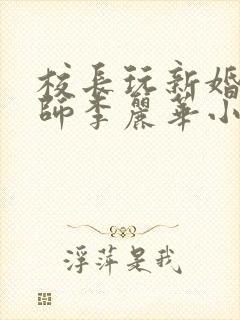 校長玩新婚
師李麗華小
浮萍是我